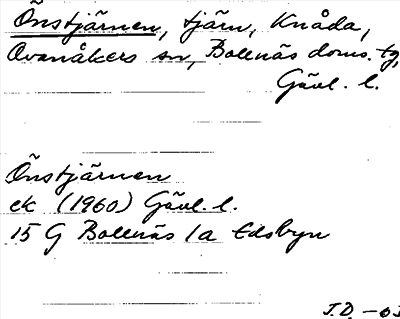 Önstjärnen, tjärn, Knåda,
Ovanåkers sn, Bollnäs doms. tg,
Gävl. l.
Önstjärnen
ek (1960) Gävl. l.
15 G Bollnäs /a Edsbyn
J.D. -63